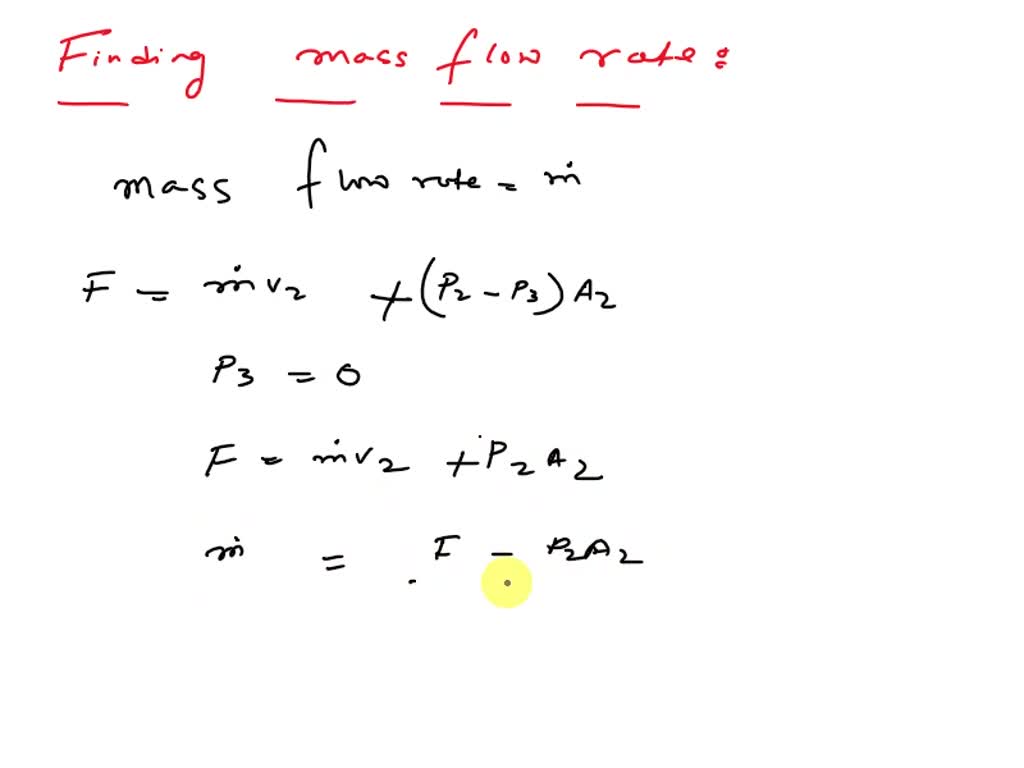 Finding mass flow rate:
mass flow rate = ṁ
F = ṁv₂ + (P₂ - P₃) A₂
P₃ = 0
F = ṁv₂ + P₂A₂
ṁ = F - P₂A₂